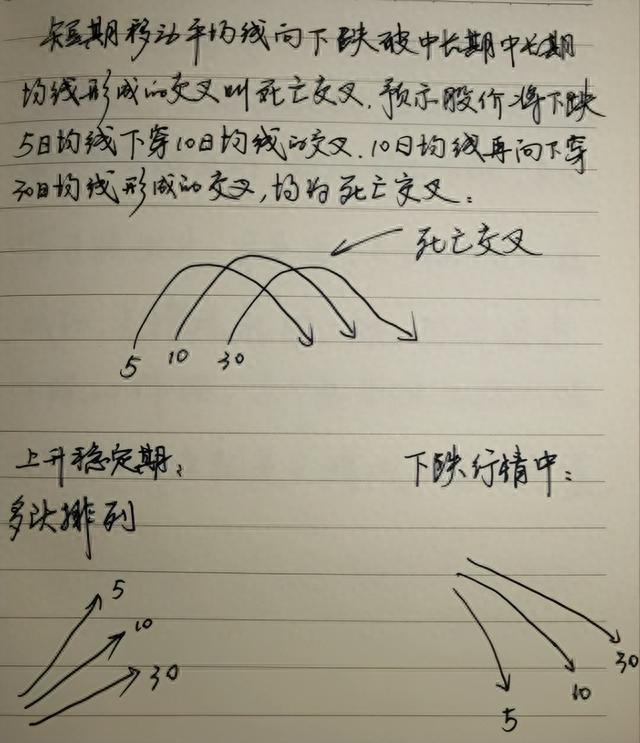 短期移动平均线向下跌破中长期中长期
均线形成的交叉叫死亡交叉.预示股价将下跌
5日均线下穿10日均线的交叉.10日均线再向下穿
30日均线形成的交叉,均为死亡交叉:
死亡交叉
5 10 30
上升稳定期: 下跌行情中:
多头排列
5
10
30
30
10
5